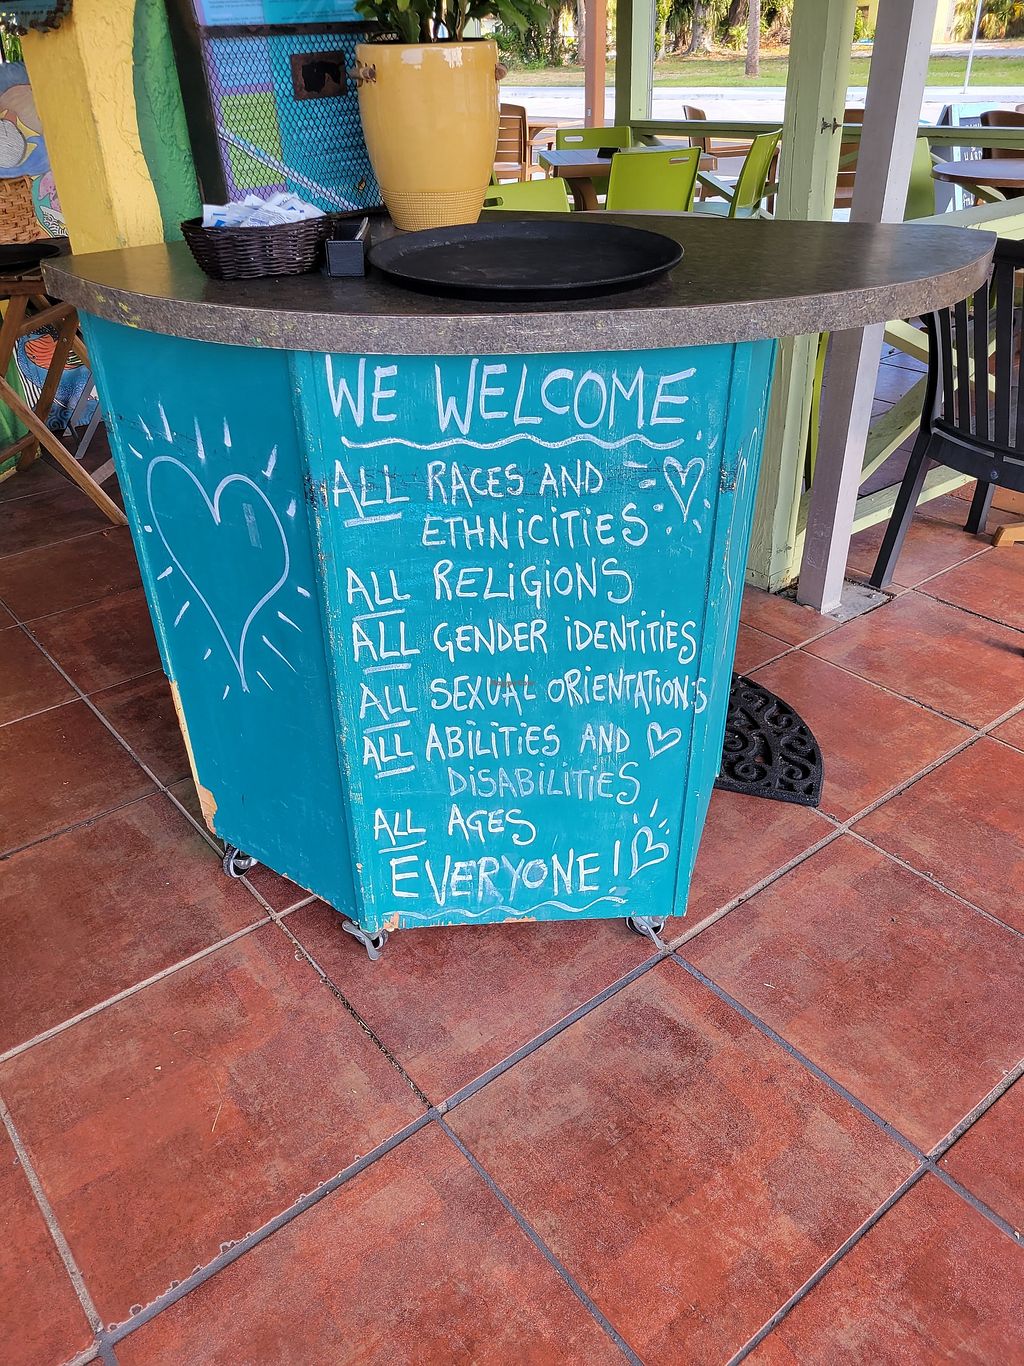 WE WELCOME
ALL RACES AND
ETHNiCiTiES
ALL RELiGiONS
ALL GENDER iDENTiTiES
ALL SEXUAL ORiENTATiONS
ALL ABiLiTiES AND
DiSABiLiTiES
ALL AGES
EVERYONE!